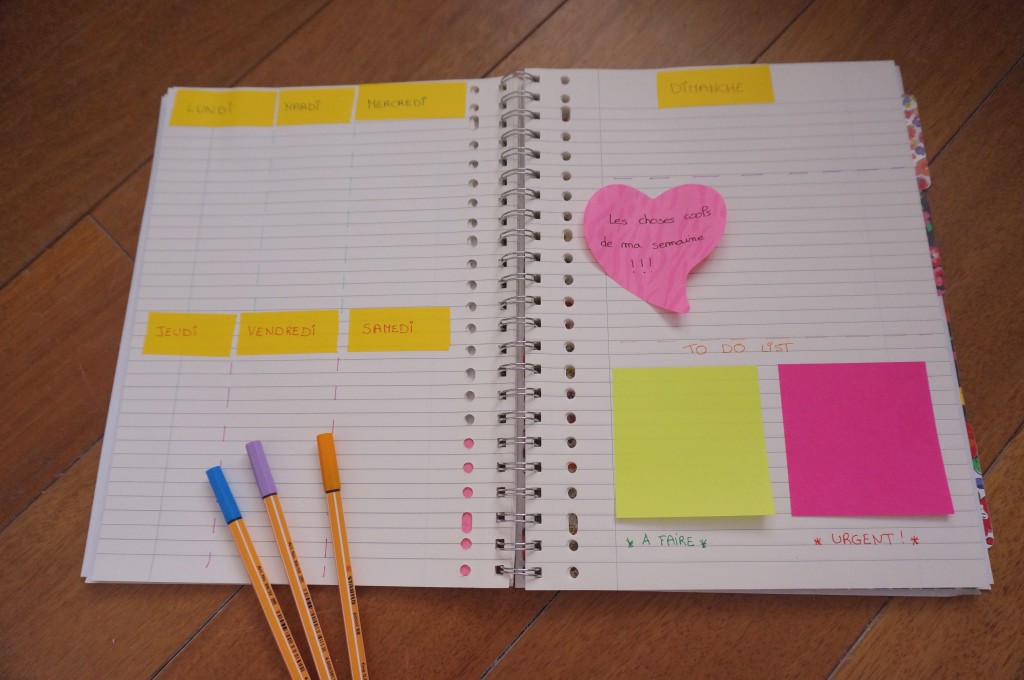 LUNDi
MARDi
MERCREDi
JEUDi
VENDREDi
SAMEDi
DiMANCHE
Les choses cools
de ma semaine
!!!
TO DO LiST
* A FAiRE *
* URGENT ! *